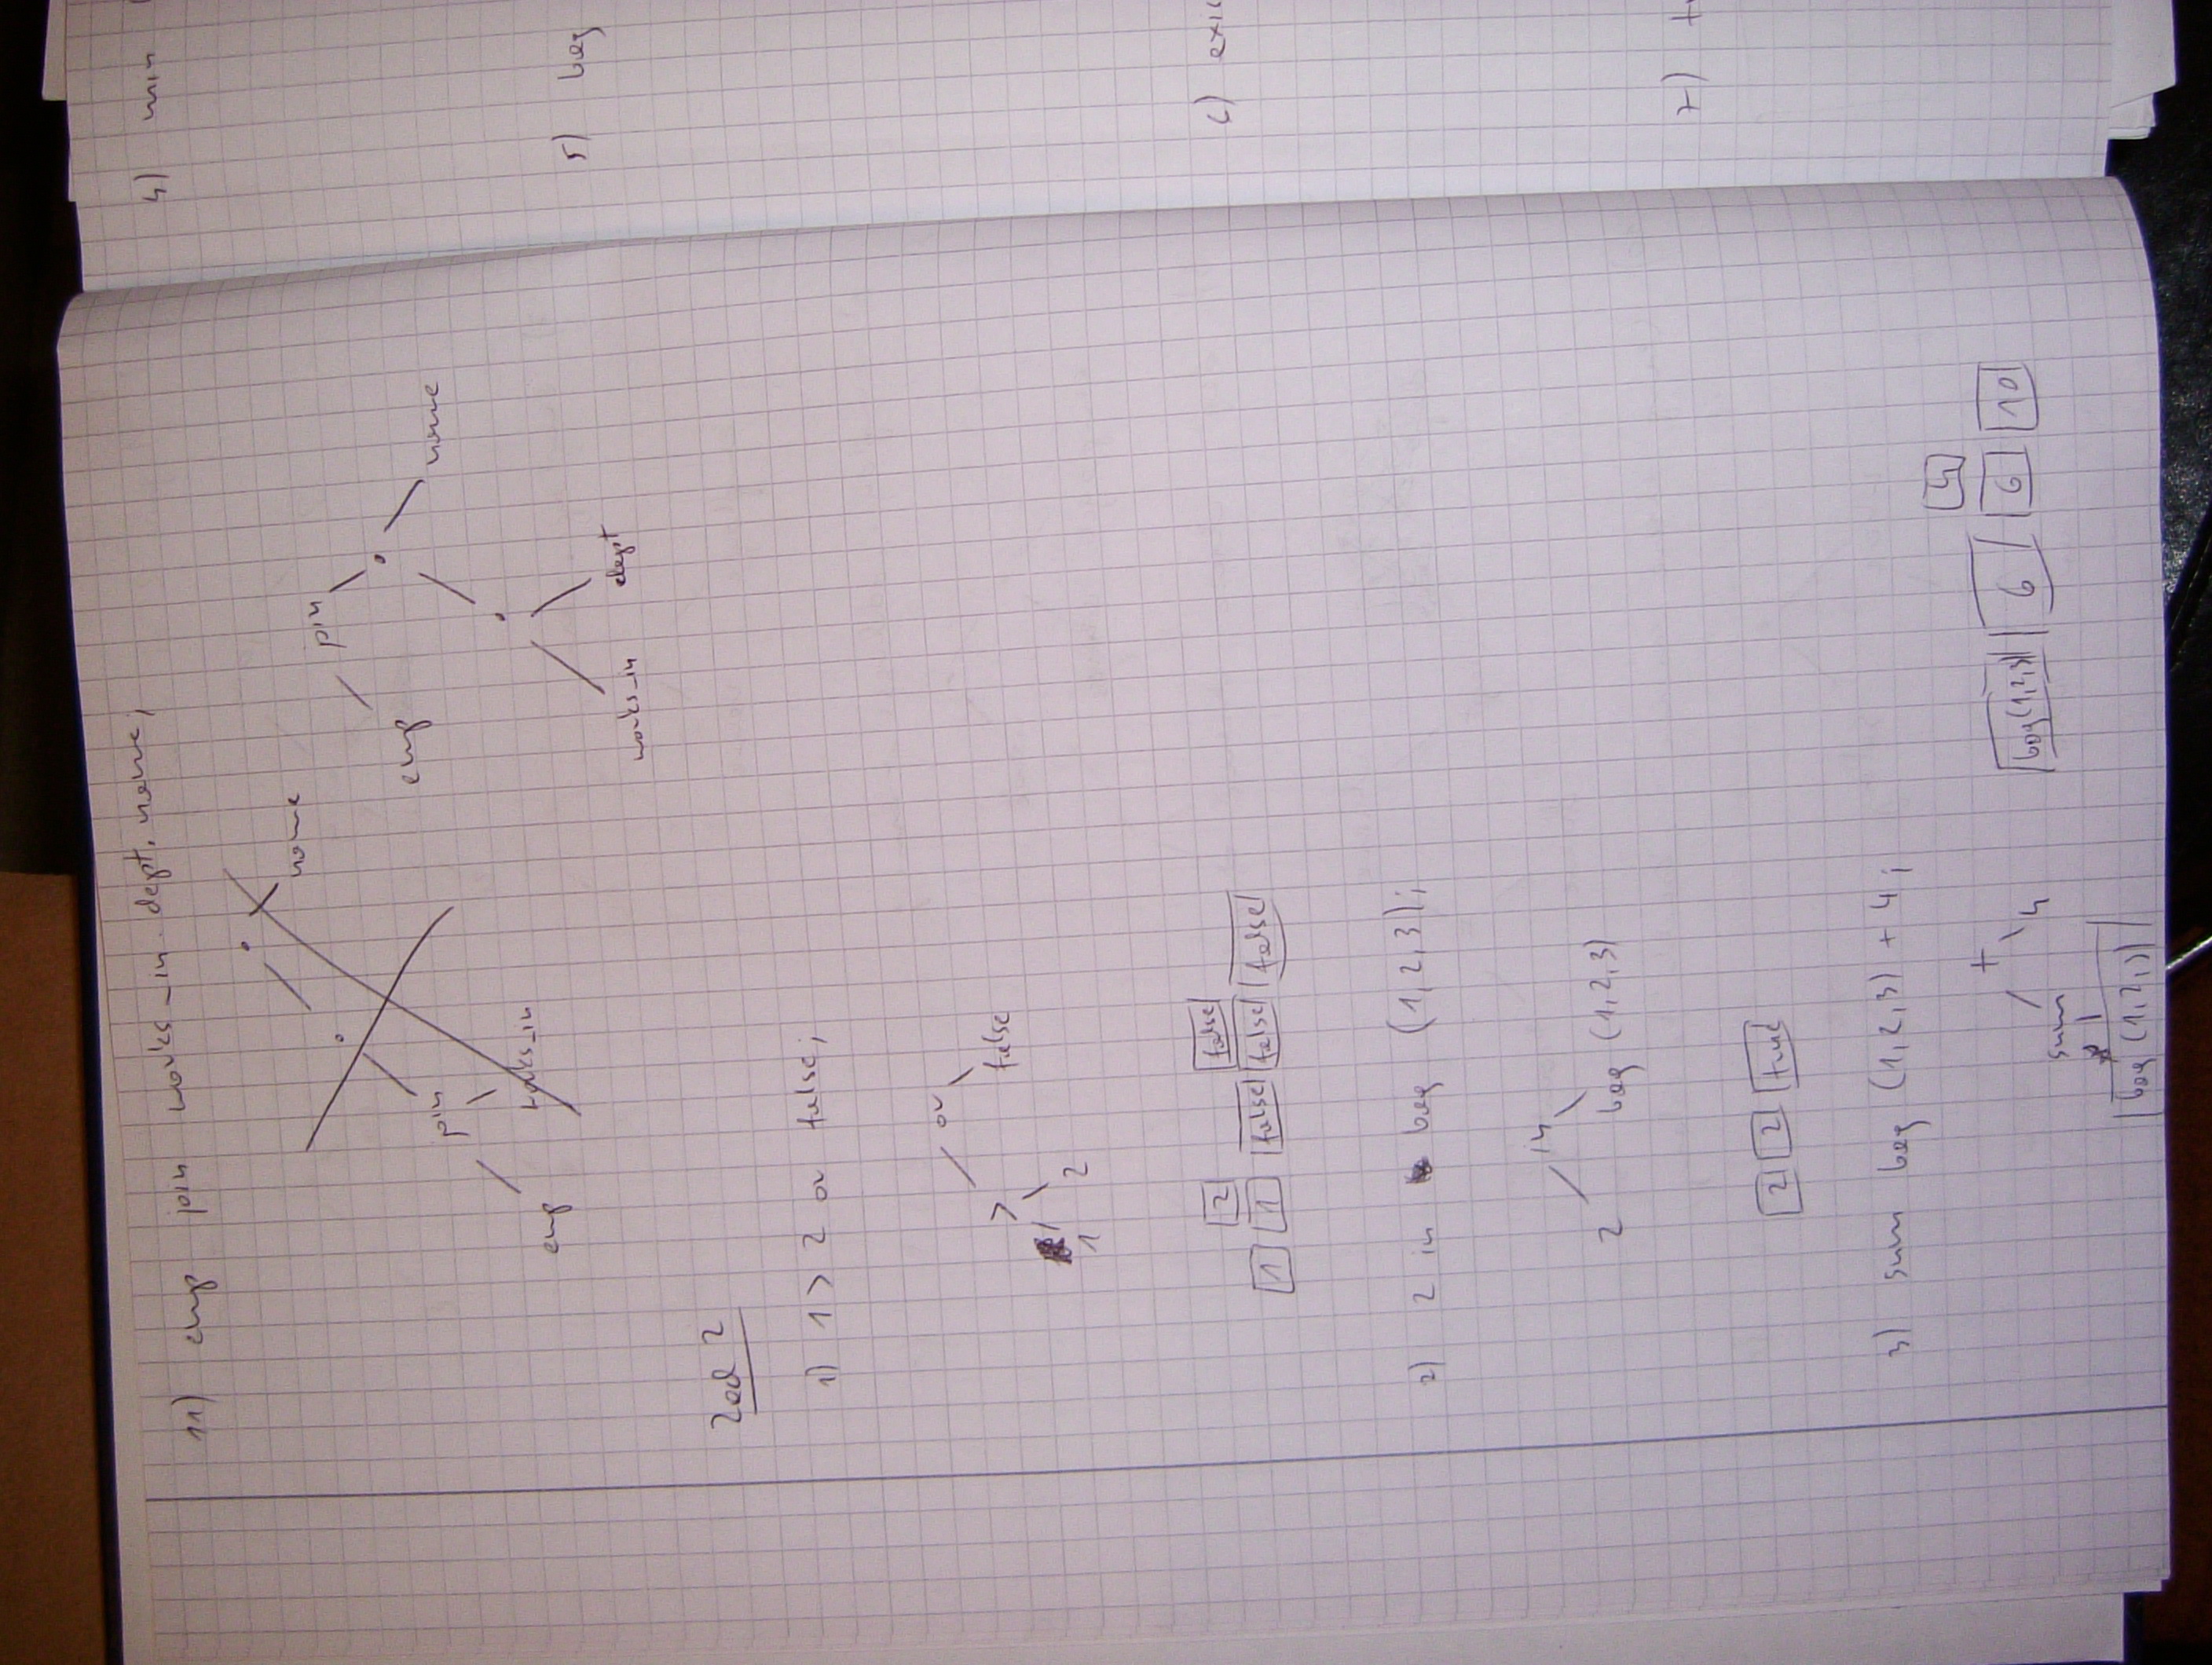 11) emp join works_in.dept.name;
name
join
name
emp
works_in
join
emp
works_in
dept
Zad 2
1) 1 > 2 or false;
or
>
false
1
2
2
false
1
1
false
false
false
2) 2 in bag (1,2,3);
in
2
bag (1,2,3)
2
2
true
3) sum bag (1,2,3) + 4;
+
sum
4
bag (1,2,3)
4
bag(1,2,3)
6
6
10
4) min
5) bag
6)
7)